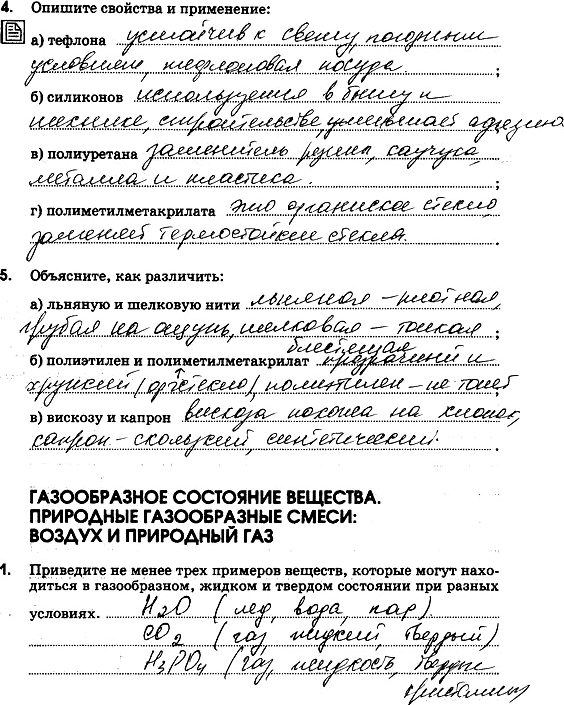 4. Опишите свойства и применение:
а) тефлона устойчив к свету, погодным
условиям, тефлоновая посуда. ;
б) силиконов используется в быту и
технике, строительстве, уменьшает адгезию
в) полиуретана заменитель резины, каучука,
металла и пластика. ;
г) полиметилметакрилата это органиское стекло,
заменяет термостойким стекла.
5. Объясните, как различить:
а) льняную и шелковую нити льняная – плотная,
грубая на ощупь, шелковая – тонкая ;
блестящая
б) полиэтилен и полиметилметакрилат прозрачный и
хрупкий (оргстекло), полиэтилен – не тонет
в) вискозу и капрон вискоза похожа на хлопок,
капрон – скользкий, синтетический.
ГАЗООБРАЗНОЕ СОСТОЯНИЕ ВЕЩЕСТВА.
ПРИРОДНЫЕ ГАЗООБРАЗНЫЕ СМЕСИ:
ВОЗДУХ И ПРИРОДНЫЙ ГАЗ
1. Приведите не менее трех примеров веществ, которые могут нахо-
диться в газообразном, жидком и твердом состоянии при разных
условиях. H2O (лед, вода, пар)
CO2 (газ, жидкий, твердый)
H3PO4 (газ, жидкость, твердые
кристаллы